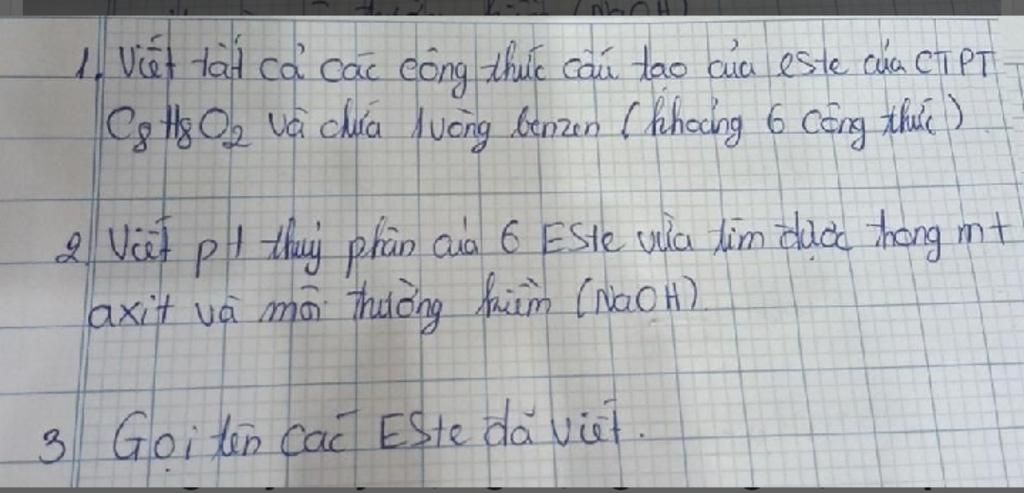 1. Viết tất cả các công thức cấu tạo của este của CTPT
C8H8O2 và chứa 1 vòng benzen (khoảng 6 công thức)
2 Viết pt thuỷ phân của 6 Este vừa tìm được trong mt
axit và môi trường kiềm (NaOH)
3 Gọi tên các Este đã viết.